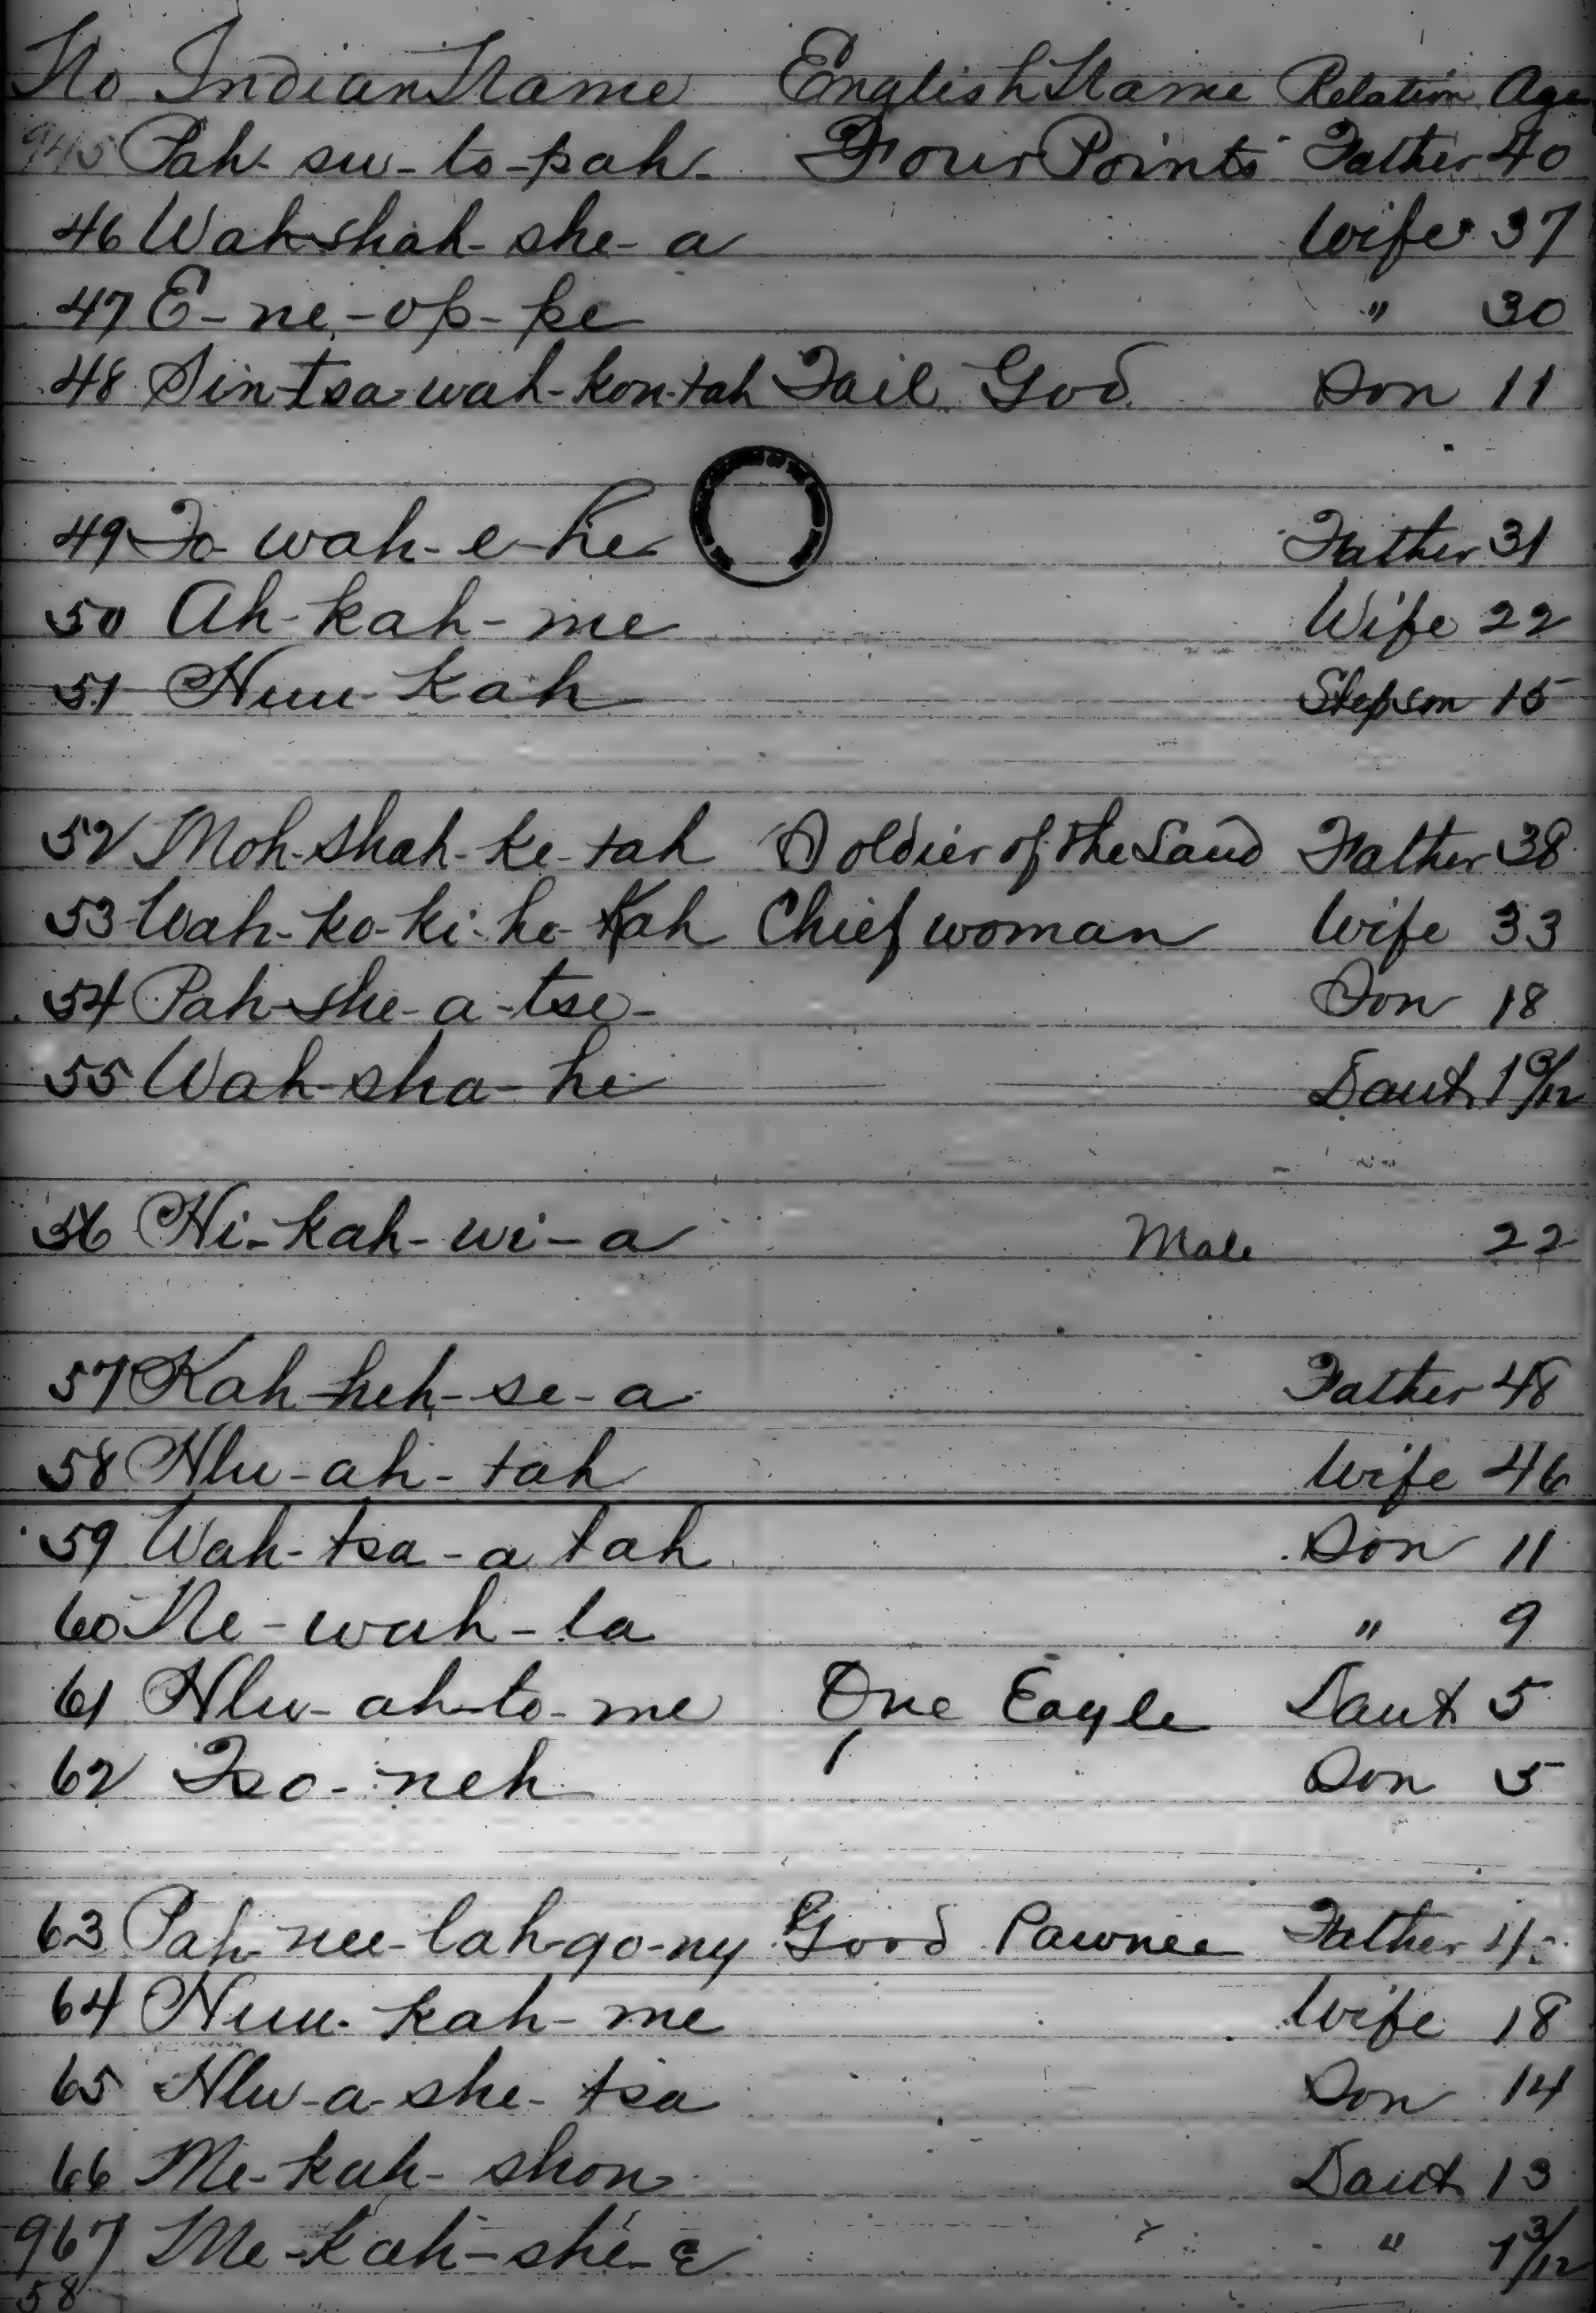 No Indian Name English Name Relation Age
945 Pah-su-to-pah- Four Points Father 40
46 Wah-shah-she-a Wife 37
47 E-ne-op-pe " 30
48 Sin-tsa-wah-kon-tah Tail God Son 11
49 To-wah-e-he Father 31
50 Ah-kah-me Wife 22
51 Huu-kah Stepson 15
52 Moh-shah-ke-tah Soldier of the Land Father 38
53 Wah-ko-ki-he-kah Chief woman Wife 33
54 Pah-she-a-tse- Son 18
55 Wah-sha-he Daut
56 Hi-kah-wi-a Male 22
57 Kah-heh-se-a Father 48
58 Hlu-ah-tah Wife 46
59 Wah-tsa-a tah Son 11
60 Ne-wah-la " 9
61 Hlu-ah-to-me One Eagle Daut 5
62 Tso-neh Son 5
63 Pah-nee-lah-go-ny Good Pawnee Father
64 Huu-kah-me Wife 18
65 Hlu-a-she-tsa Son 14
66 Me-kah-shon Daut 13
967 Me-kah-she-e " 1 3/12
58